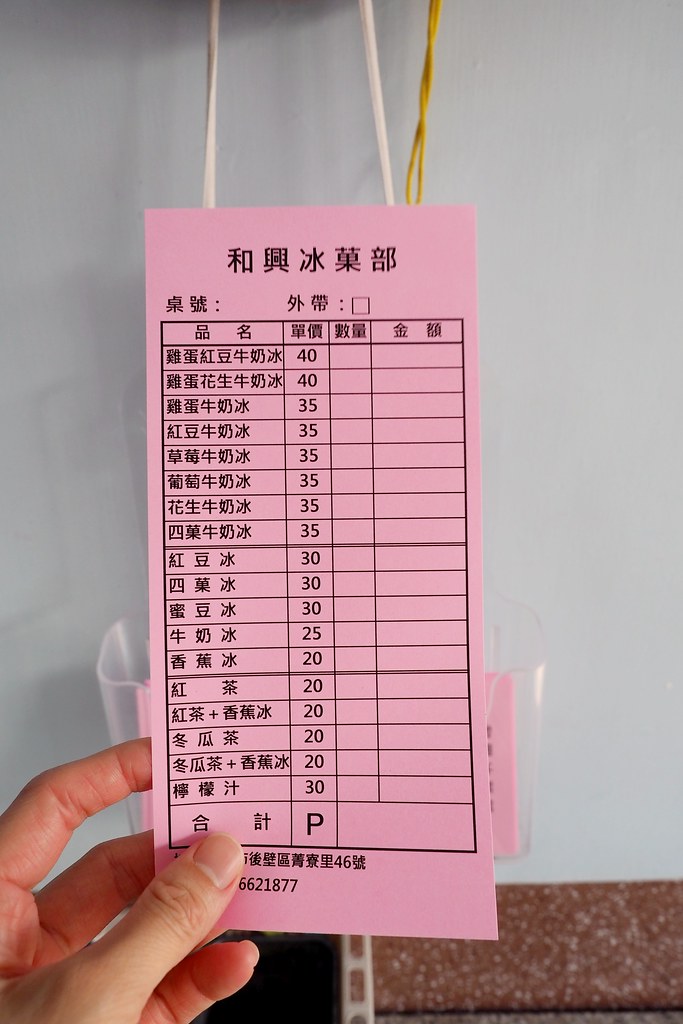 和興冰菓部
桌號： 外帶：□
品名 單價 數量 金額
雞蛋紅豆牛奶冰 40
雞蛋花生牛奶冰 40
雞蛋牛奶冰 35
紅豆牛奶冰 35
草莓牛奶冰 35
葡萄牛奶冰 35
花生牛奶冰 35
四菓牛奶冰 35
紅豆冰 30
四菓冰 30
蜜豆冰 30
牛奶冰 25
香蕉冰 20
紅茶 20
紅茶+香蕉冰 20
冬瓜茶 20
冬瓜茶+香蕉冰 20
檸檬汁 30
合計 P
後壁區菁寮里46號
6621877